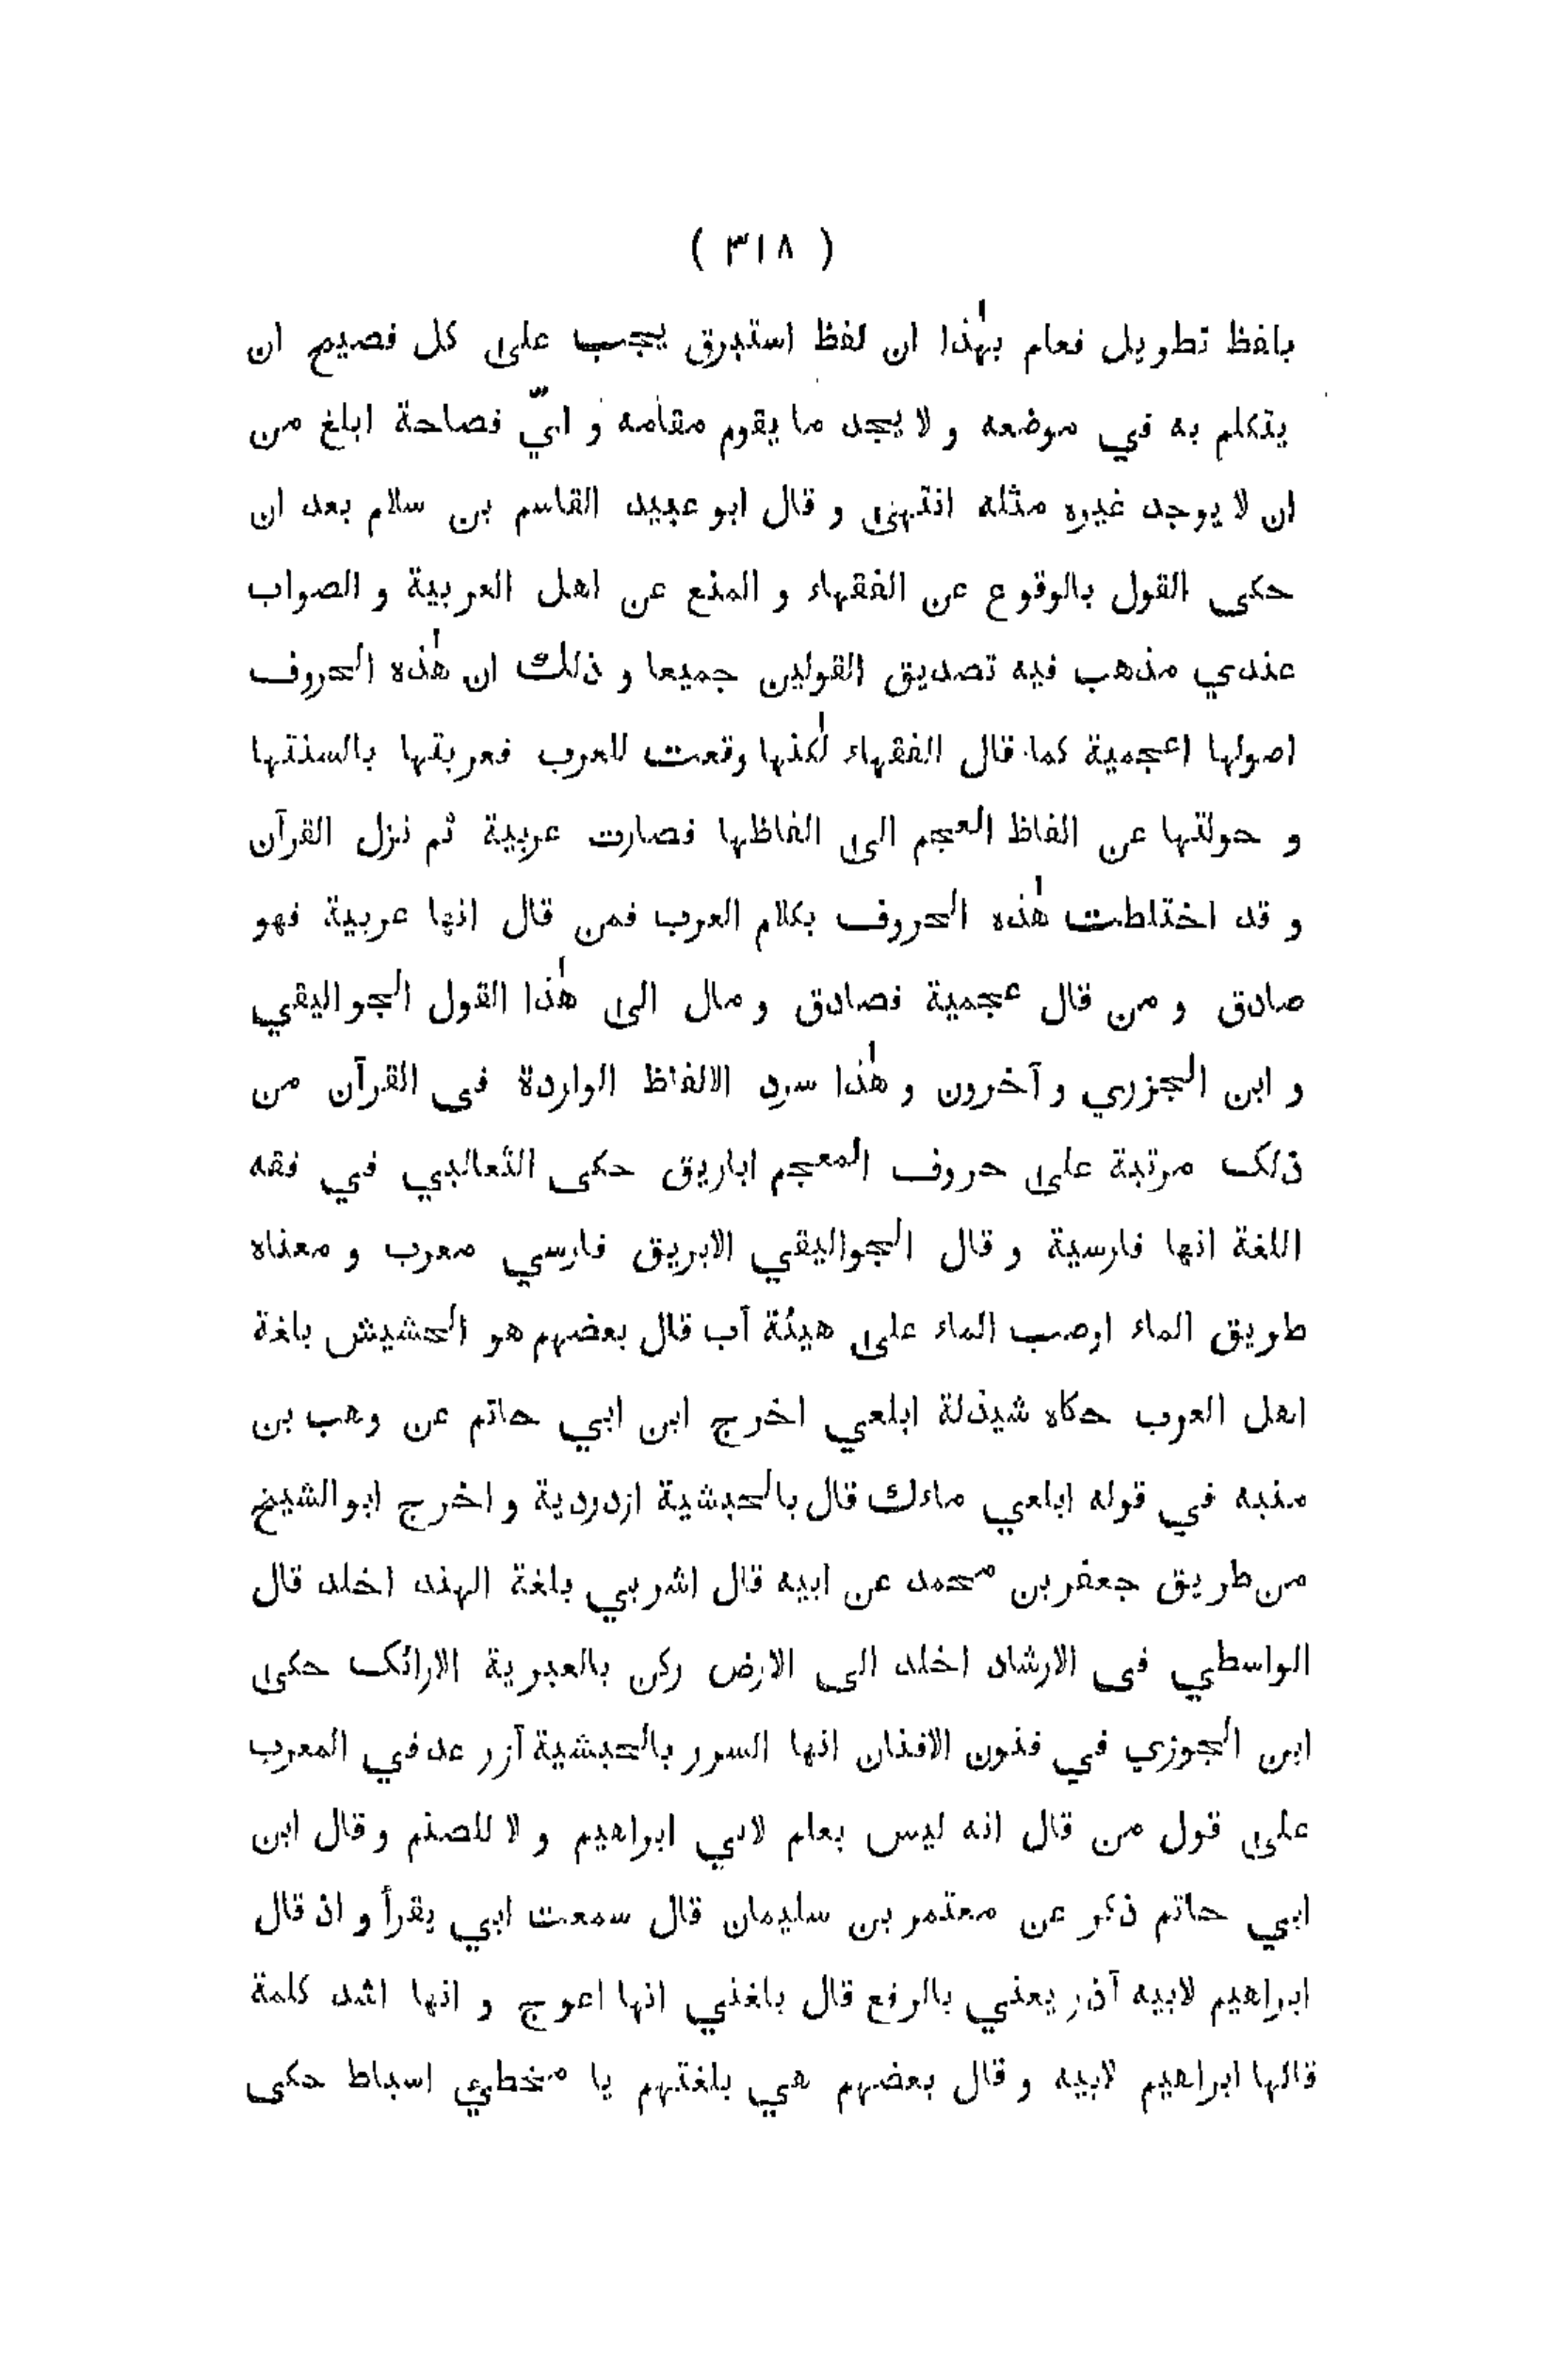 ( ٣١٨ )
بلفظ تطويل فعلم بهٰذا ان لفظ استبرق يجب على كل فصيح ان
يتكلم به في موضعه و لا يجد ما يقوم مقامه و ايّ فصاحة ابلغ من
ان لا يوجد غيره مثله انتهى و قال ابو عبيد القاسم بن سلام بعد ان
حكى القول بالوقوع عن الفقهاء و المنع عن اهل العربية و الصواب
عندي مذهب فيه تصديق القولين جميعا و ذلك ان هٰذه الحروف
اصولها اعجمية كما قال الفقهاء لٰكنها وقعت للعرب فعربتها بالسنتها
و حولتها عن الفاظ العجم الى الفاظها فصارت عربية ثم نزل القرآن
و قد اختلطت هٰذه الحروف بكلام العرب فمن قال انها عربية فهو
صادق و من قال عجمية فصادق و مال الى هٰذا القول الجواليقي
و ابن الجزري و آخرون و هٰذا سرد الالفاظ الواردة فى القرآن من
ذلك مرتبة على حروف المعجم اباريق حكى الثعالبي في فقه
اللغة انها فارسية و قال الجواليقي الابريق فارسي معرب و معناه
طريق الماء اوصب الماء على هيئة آب قال بعضهم هو الحشيش بلغة
اهل العرب حكاه شيذلة ابلعي اخرج ابن ابي حاتم عن وهب بن
منبه في قوله ابلعي ماءك قال بالحبشية ازدردية و اخرج ابو الشيخ
من طريق جعفر بن محمد عن ابيه قال اشربي بلغة الهند اخلد قال
الواسطي فى الارشاد اخلد الى الارض ركن بالعبرية الارائك حكى
ابن الجوزي في فنون الافنان انها السرر بالحبشية آزر عد في المعرب
على قول من قال انه ليس بعلم لابي ابراهيم و لا للصنم و قال ابن
ابي حاتم ذكر عن معتمر بن سليمان قال سمعت ابي يقرأ و اذ قال
ابراهيم لابيه آذر يعني بالرفع قال بلغني انها اعوج و انها اشد كلمة
قالها ابراهيم لابيه و قال بعضهم هي بلغتهم يا مخطي اسباط حكى